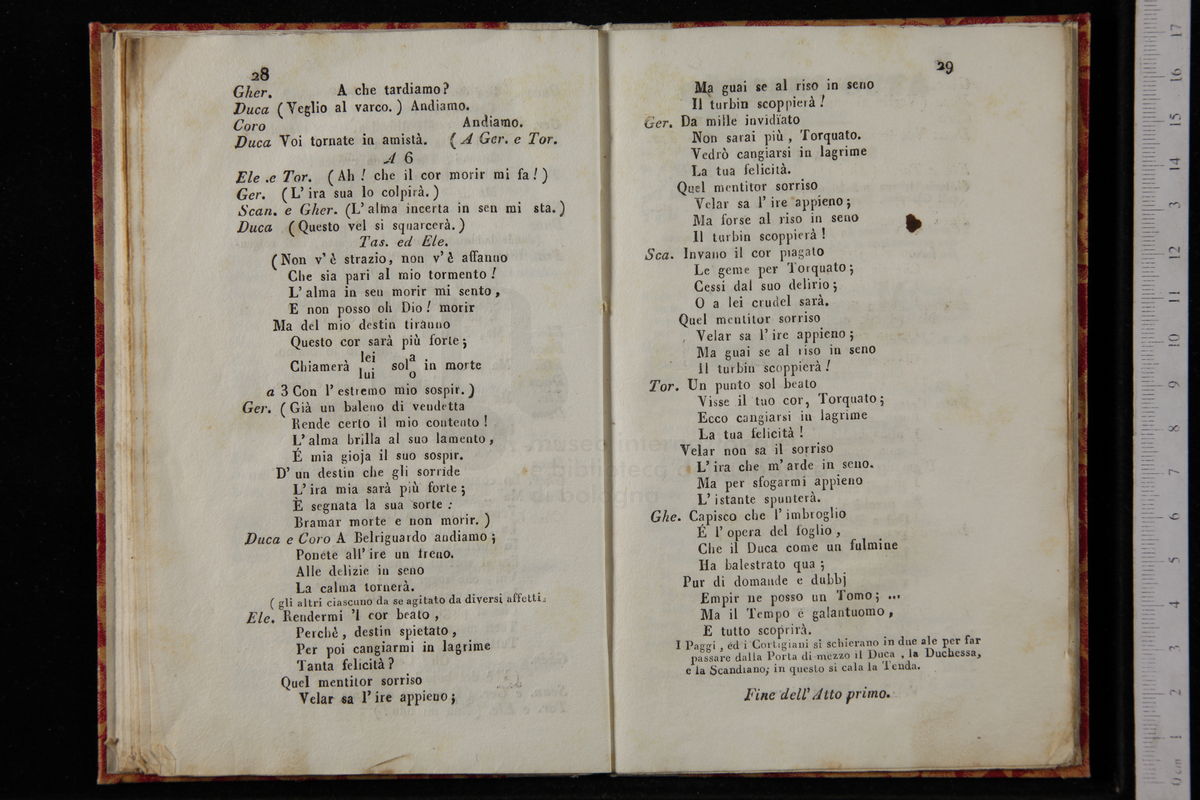 28
Gher. A che tardiamo?
Duca (Veglio al varco.) Andiamo.
Coro Andiamo.
Duca Voi tornate in amistà. (A Ger. e Tor.
A 6
Ele .e Tor. (Ah! che il cor morir mi fa!)
Ger. (L'ira sua lo colpirà.)
Scan. e Gher. (L'alma incerta in sen mi sta.)
Duca (Questo vel si squarcerà.)
Tas. ed Ele.
(Non v'è strazio, non v'è affanno
Che sia pari al mio tormento!
L'alma in sen morir mi sento,
E non posso oh Dio! morir
Ma del mio destin tiranno
Questo cor sarà più forte;
Chiamerà lei lui sol a o in morte
a 3 Con l'estremo mio sospir.)
Ger. (Già un baleno di vendetta
Rende certo il mio contento!
L'alma brilla al suo lamento,
É mia gioja il suo sospir.
D'un destin che gli sorride
L'ira mia sarà più forte;
È segnata la sua sorte:
Bramar morte e non morir.)
Duca e Coro A Belriguardo andiamo;
Ponete all'ire un freno.
Alle delizie in seno
La calma tornerà.
(gli altri ciascuno da se agitato da diversi affetti.
Ele. Rendermi 'l cor beato,
Perchè, destin spietato,
Per poi cangiarmi in lagrime
Tanta felicità?
Quel mentitor sorriso
Velar sa l'ire appieno;
29
Ma guai se al riso in seno
Il turbin scoppierà!
Ger. Da mille invidiato
Non sarai più, Torquato.
Vedrò cangiarsi in lagrime
La tua felicità.
Quel mentitor sorriso
Velar sa l'ire appieno;
Ma forse al riso in seno
Il turbin scoppierà!
Sca. Invano il cor piagato
Le geme per Torquato;
Cessi dal suo delirio;
O a lei crudel sarà.
Quel mentitor sorriso
Velar sa l'ire appieno;
Ma guai se al riso in seno
Il turbin scoppierà!
Tor. Un punto sol beato
Visse il tuo cor, Torquato;
Ecco cangiarsi in lagrime
La tua felicità!
Velar non sa il sorriso
L'ira che m'arde in seno.
Ma per sfogarmi appieno
L'istante spunterà.
Ghe. Capisco che l'imbroglio
É l'opera del foglio,
Che il Duca come un fulmine
Ha balestrato qua;
Pur di domande e dubbj
Empir ne posso un Tomo; ...
Ma il Tempo è galantuomo,
E tutto scoprirà.
I Paggi, ed i Cortigiani si schierano in due ale per far
passare dalla Porta di mezzo il Duca, la Duchessa,
e la Scandiano; in questo si cala la Tenda.
Fine dell'Atto primo.